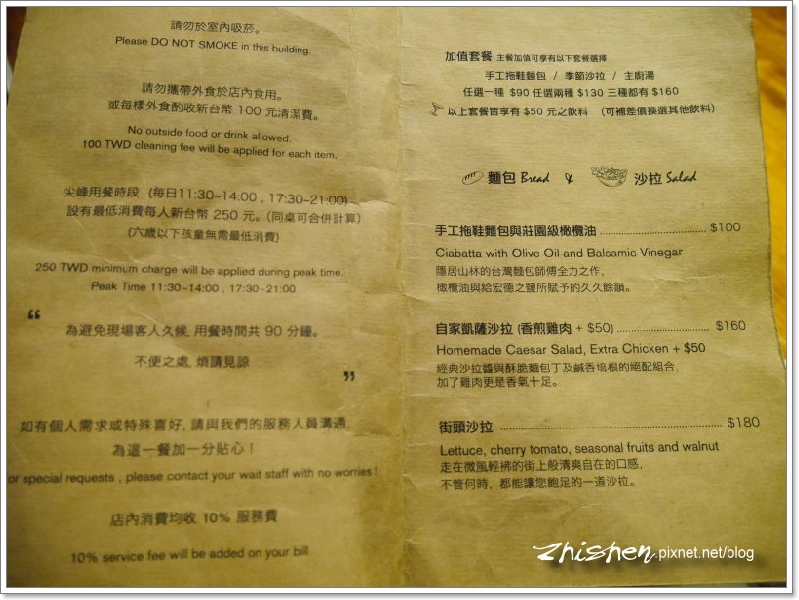 請勿於室內吸菸。
Please DO NOT SMOKE in this building.
請勿攜帶外食於店內食用。
或每樣外食酌收新台幣 100 元清潔費。
No outside food or drink allowed.
100 TWD cleaning fee will be applied for each item.
尖峰用餐時段 (每日11:30~14:00 , 17:30~21:00)
設有最低消費每人新台幣 250 元。(同桌可合併計算)
(六歲以下孩童無需最低消費)
250 TWD minimum charge will be applied during peak time.
Peak Time 11:30~14:00 , 17:30~21:00
“
為避免現場客人久候, 用餐時間共 90 分鐘。
不便之處, 煩請見諒
”
如有個人需求或特殊喜好, 請與我們的服務人員溝通,
為這一餐加一分貼心！
or special requests , please contact your wait staff with no worries !
店內消費均收 10% 服務費
10% service fee will be added on your bill
加值套餐 主餐加值可享有以下套餐選擇
手工拖鞋麵包 / 季節沙拉 / 主廚湯
任選一種 $90 任選兩種 $130 三種都有 $160
以上套餐皆享有 $50 元之飲料 (可補差價換選其他飲料)
麵包 Bread & 沙拉 Salad
手工拖鞋麵包與莊園級橄欖油 ........................ $100
Ciabatta with Olive Oil and Balsamic Vinegar
隱居山林的台灣麵包師傅全力之作,
橄欖油與給宏德之鹽所賦予的久久餘韻。
自家凱薩沙拉 (香煎雞肉 + $50) ...................... $160
Homemade Caesar Salad, Extra Chicken + $50
經典沙拉醬與酥脆麵包丁及鹹香培根的絕配組合,
加了雞肉更是香氣十足。
街頭沙拉 ........................................................ $180
Lettuce, cherry tomato, seasonal fruits and walnut
走在微風輕拂的街上般清爽自在的口感,
不管何時, 都能讓您飽足的一道沙拉。
zhishen.pixnet.net/blog